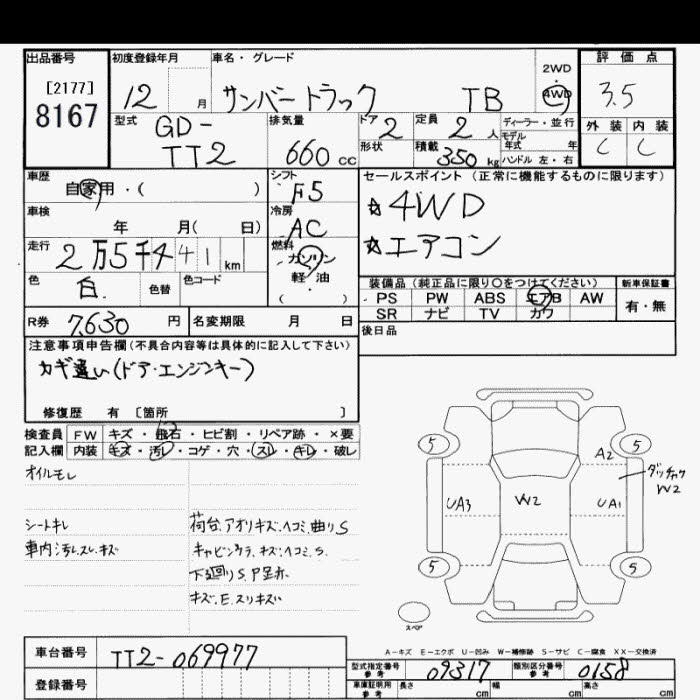 出品番号
[2177]
8167
初度登録年月
12 月
車名・グレード
サンバートラック TB
2WD
・
4WD
評価点
3.5
型式
GD-
TT2
排気量
660 cc
ドア
2
定員
2 人
ディーラー・並行
モデル
年式 年
形状
積載
350 kg
ハンドル 左・右
外装 内装
C C
車歴
自家用・( )
シフト
F5
セールスポイント(正常に機能するものに限ります)
☆4WD
☆エアコン
車検
年 月( 日)
冷房
AC
走行
2万5千441 km
燃料
ガソリン
軽・油
( )
色
白.
色替
色コード
装備品(純正品に限り○をつけてください)
新車保証書
PS PW ABS エアB AW
SR ナビ TV カワ
有・無
R券 7,630 円
名変期限 月 日
後日品
注意事項申告欄(不具合内容等は具体的に記入して下さい)
カギ違い(ドア・エンジンキー)
修復歴 有 〔箇所 〕
検査員
記入欄
FW キズ・飛石・ヒビ割・リペア跡・×要
内装 キズ・汚レ・コゲ・穴・スレ・キレ・破レ
オイルモレ
シートキレ
車内汚レ.スレ.キズ
荷台.アオリキズ.ヘコミ.曲りS
キズ.ヘコミ.S.
下廻りS.
キズ.E.スリキズ
5 5
A2
ダッチャク
W2
UA3 W2 UA1
5 5
スペア
A-キズ E-エクボ U-凹み W-補修跡 S-サビ C-腐食 XX-交換済
車台番号 TT2-069977
登録番号
型式指定番号
参考
09317
類別区分番号
参考
0158
車庫証明用
参考
長さ cm 幅 cm 高さ cm